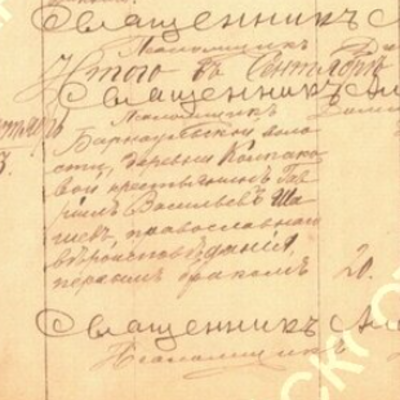 Священникъ Ал
Псаломщикъ
Итого въ Сентябрѣ
Священникъ Ал
Псаломщикъ
Барнаульской воло
сти, деревни Колпако
вой крестьянинъ Гав
риилъ Васильевъ Ша
гаевъ, православнаго
вѣроисповѣданія,
первымъ бракомъ 20.
Священникъ Ал
Псаломщикъ